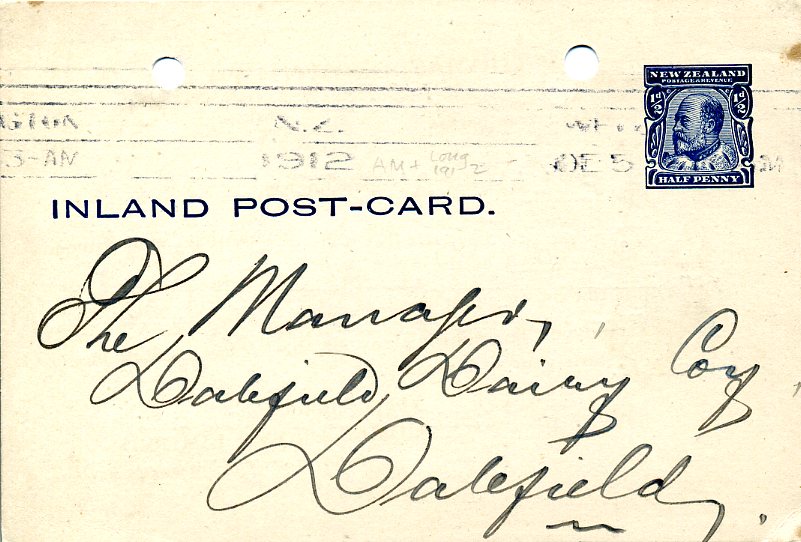 NEW ZEALAND
POSTAGE & REVENUE
½d ½d
HALF PENNY
N.Z.
3-AN 1912 DE 5
AM+ Long 1912
INLAND POST-CARD.
The Manager,
Dalefield Dairy Coy
Dalefield.